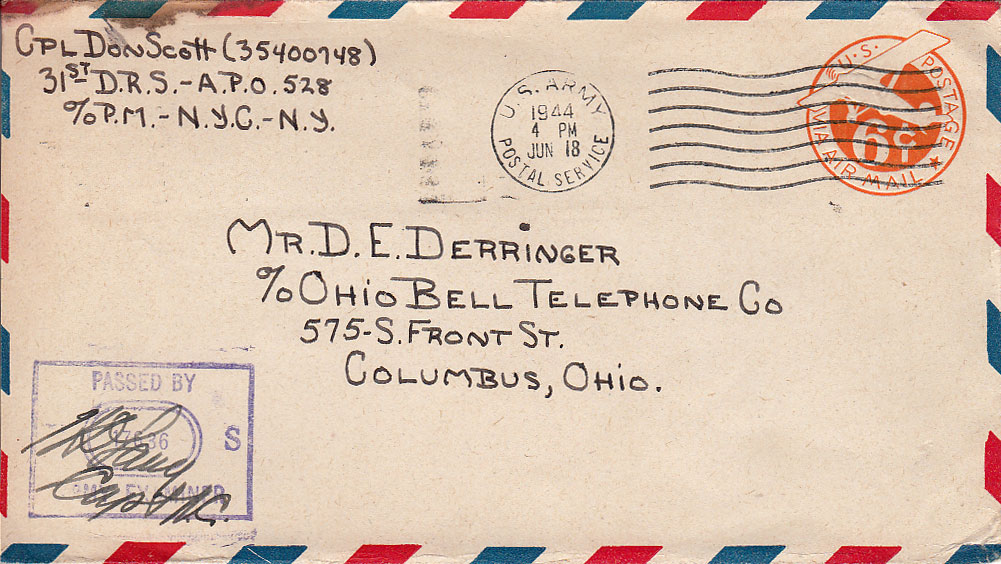 CPL DON SCOTT (35400748)
31ST D.R.S.-A.P.O. 528
c/o P.M.-N.Y.C.-N.Y.
U.S. ARMY
1944
4 PM
JUN 18
POSTAL SERVICE
U.S. POSTAGE
6¢
VIA AIR MAIL
MR. D. E. DERRINGER
c/o OHIO BELL TELEPHONE CO
575-S. FRONT ST.
COLUMBUS, OHIO.
PASSED BY
S
Capt